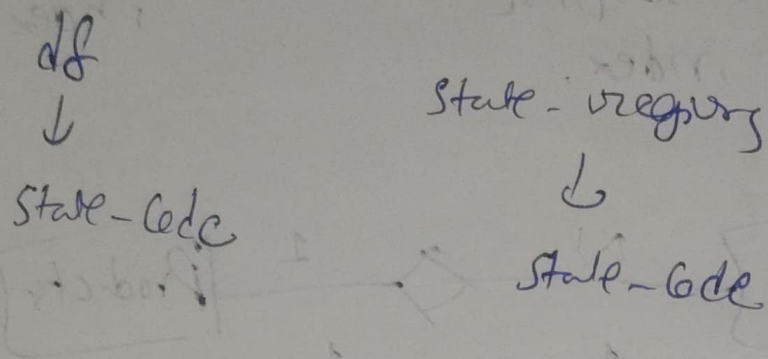 df
state-code
state-regions
state-code